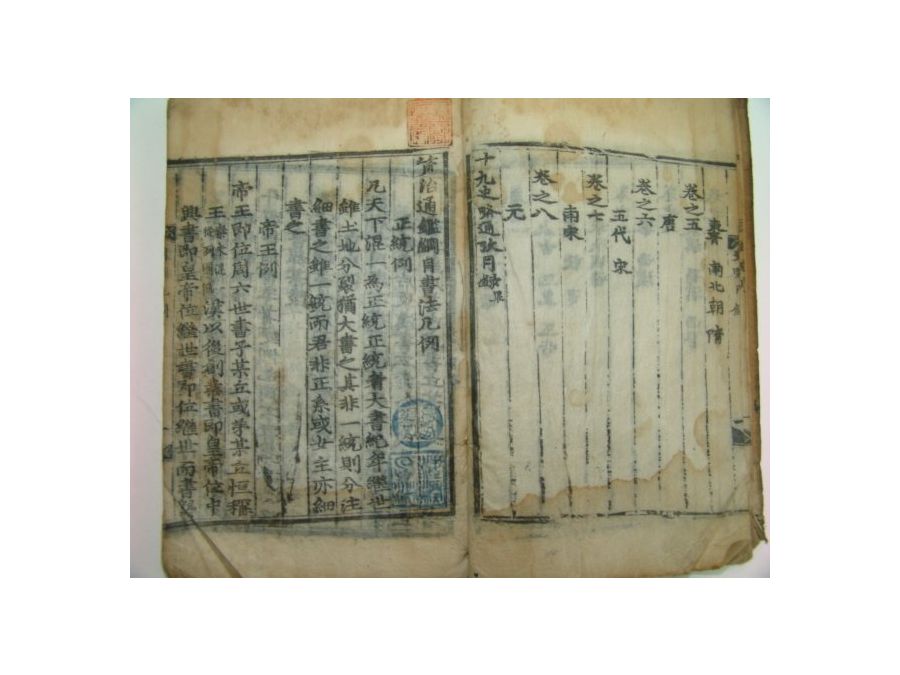 東晉 南北朝 隋
卷之五
唐
卷之六
五代 宋
卷之七
南宋
卷之八
元
十九史略通攷目錄畢
資治通鑑綱目書法凡例
正統例
凡天下混一為正統正統者大書紀年繼世
雖土地分裂猶大書之其非一統則分注
細書之雖一統而君非正系或女主亦細
書之
帝王例
帝王即位周六世書子某立或弟某立恒釋
王 漢以後創業書即皇帝位中
興書即皇帝位繼世書即位繼世而書